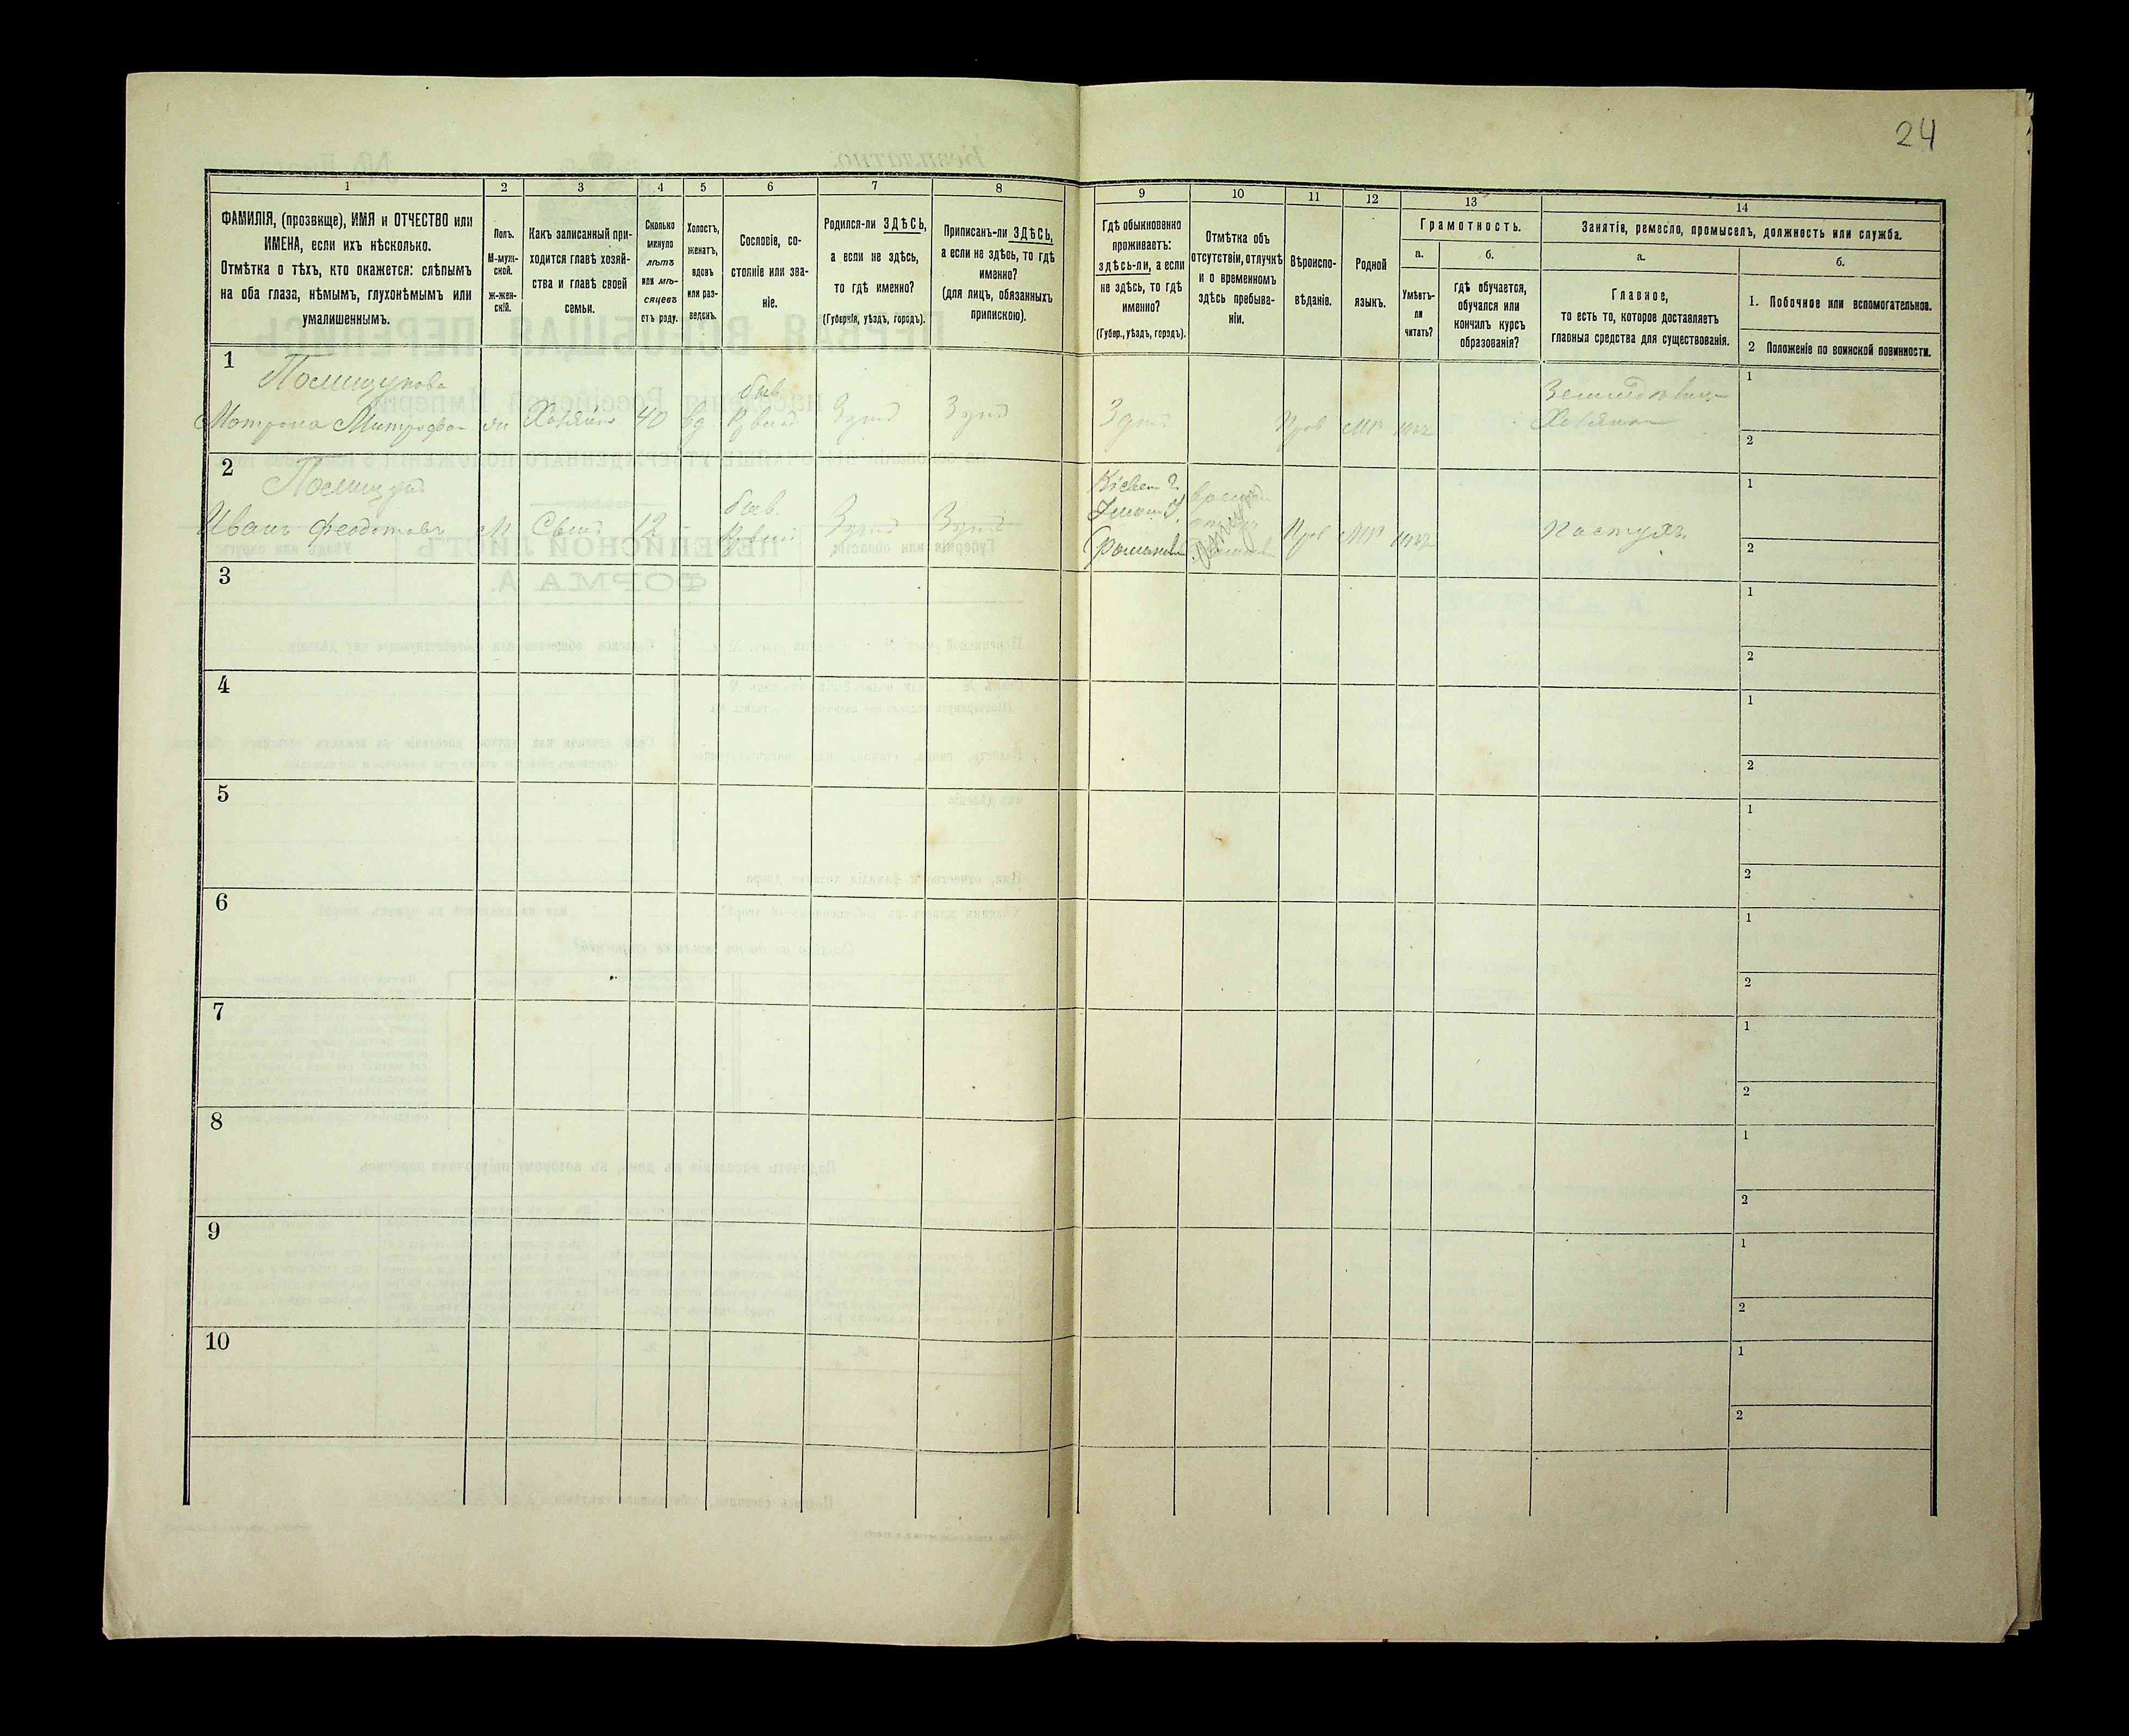 24
1
2
3
4
5
6
7
8
9
10
11
12
13
14
ФАМИЛІЯ, (прозвище), ИМЯ и ОТЧЕСТВО или
ИМЕНА, если ихъ нѣсколько.
Отмѣтка о тѣхъ, кто окажется: слѣпымъ
на оба глаза, нѣмымъ, глухонѣмымъ или
умалишеннымъ.
Полъ.
М-муж-
ской.
ж-жен-
скій.
Какъ записанный при-
ходится главѣ хозяй-
ства и главѣ своей
семьи.
Сколько
минуло
лѣтъ
или мѣ-
сяцевъ
отъ роду.
Холостъ,
женатъ,
вдовъ
или раз-
веденъ.
Сословіе, со-
стояніе или зва-
ніе.
Родился-ли ЗДѢСЬ,
а если не здѣсь,
то гдѣ именно?
(Губернія, уѣздъ, городъ).
Приписанъ-ли ЗДѢСЬ,
а если не здѣсь, то гдѣ
именно?
(для лицъ, обязанныхъ
припискою).
Гдѣ обыкновенно
проживаетъ:
здѣсь-ли, а если
не здѣсь, то гдѣ
именно?
(Губер., уѣздъ, городъ).
Отмѣтка объ
отсутствіи, отлучкѣ
и о временномъ
здѣсь пребыва-
ніи.
Вѣроиспо-
вѣданіе.
Родной
языкъ.
Грамотность.
а.
Умѣетъ-
ли
читать?
б.
гдѣ обучается,
обучался или
кончилъ курсъ
образованія?
Занятія, ремесло, промыселъ, должность или служба.
а.
Главное,
то есть то, которое доставляетъ
главныя средства для существованія.
б.
1. Побочное или вспомогательное.
2 Положеніе по воинской повинности.
1
Полищукова
Мотрона Митрофа-
Хозяйка
40
вд
быв.
Здѣсь
Здѣсь
Здѣсь
Прав
МР
нѣтъ
Хозяйка
1
2
2
Полищукъ
Иванъ Феодотовъ
М
Сынъ
12
-
быв.
Здѣсь
Здѣсь
Кіевск. г.
Прав
МР
нѣтъ
Пастухъ
1
2
3
1
2
4
1
2
5
1
2
6
1
2
7
1
2
8
1
2
9
1
2
10
1
2